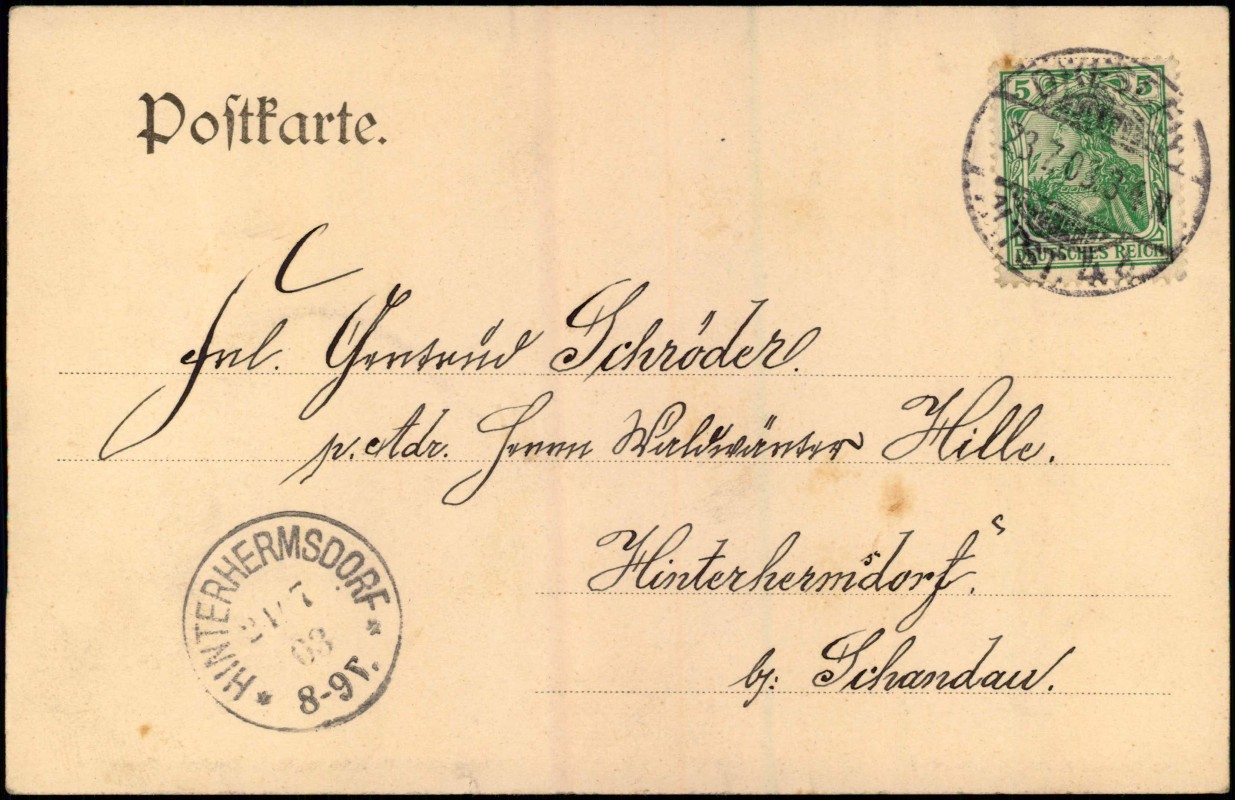 Postkarte.
5 5
DEUTSCHES REICH
23.7.03.3
ALTST.
Frl. Gertrud Schröder.
p. Adr. Herrn Waldwärter Hille.
Hinterhermsdorf.
b/: Schandau.
HINTERHERMSDORF
24 7
03
8-9V.